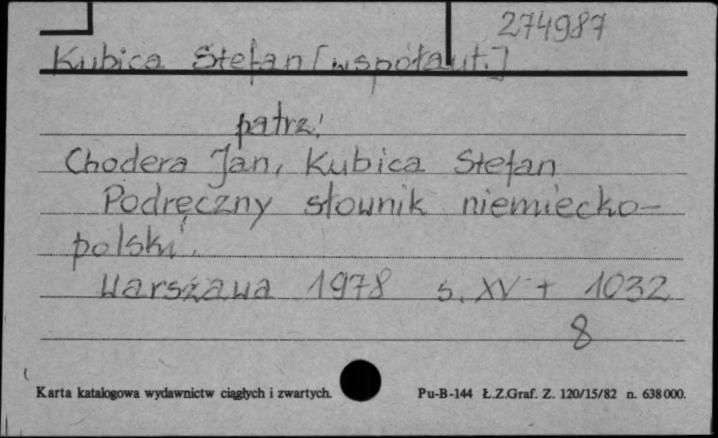 274987
Kubica Stefan [współaut.]
patrz:
Chodera Jan, Kubica Stefan
Podręczny słownik niemiecko-
polski.
Warszawa 1978 s. XV + 1032
8
Karta katalogowa wydawnictw ciągłych i zwartych. Pu-B-144 Ł.Z.Graf. Z. 120/15/82 n. 638000.